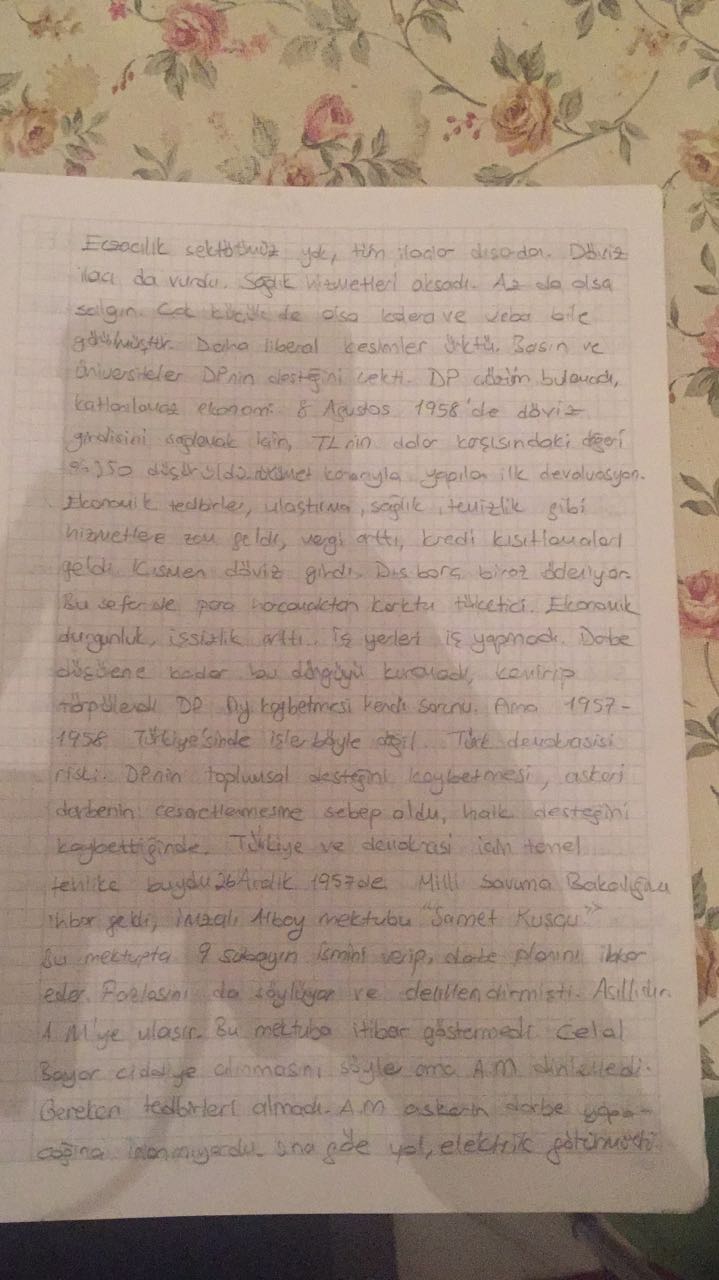 Eczacılık sektörümüz yok, tüm ilaçlar dışardan. Döviz
ilacı da vurdu. Sağlık hizmetleri aksadı. Az da olsa
salgın. Çok küçük de olsa kolera ve veba bile
görülmüştür. Daha liberal kesimler ürktü. Basın ve
üniversiteler DPnin desteğini çekti. DP çözüm bulamadı,
katlanılamaz ekonomi. 8 Ağustos 1958'de döviz
girdisini sağlamak için, TLnin dolar karşısındaki değeri
düşürüldü. hükümet kararıyla yapılan ilk devalüasyon.
Ekonomik tedbirler, ulaştırma, sağlık, temizlik gibi
hizmetlere zam geldi, vergi arttı, kredi kısıtlamaları
geldi. Kısmen döviz girdi. Dış borç biraz ödeniyor.
Bu sefer de para harcamaktan korktu tüketici. Ekonomik
durgunluk, işsizlik arttı. İş yerleri iş yapmadı. Darbe
düşüene kadar bu döngüyü kıramadı, kemirip
törpülendi DP. Oy kaybetmesi kendi sorunu. Ama 1957-
1958 Türkiye'sinde işler böyle değil. Türk demokrasisi
riski. DPnin toplumsal desteğini kaybetmesi, askeri
darbenin cesaretlenmesine sebep oldu, halk desteğini
kaybettiğinde. Türkiye ve demokrasi için temel
tehlike buydu. 26 Aralık 1957de Milli Savunma Bakanlığına
ihbar geldi, imzalı Albay mektubu "Samet Kuşçu"
Bu mektupta 9 subayın ismini verip, darbe planını ihbar
eder. Fazlasını da söylüyor ve delillendirmişti. Asıllıdır.
A.M'ye ulaşır. Bu mektuba itibar göstermedi. Celal
Bayar ciddiye alınmasını söyler ama A.M. dinlemedi.
Gereken tedbirleri almadı. A.M askerin darbe yapa-
cağına inanmıyordu. ona göre yol, elektrik götürmüştü